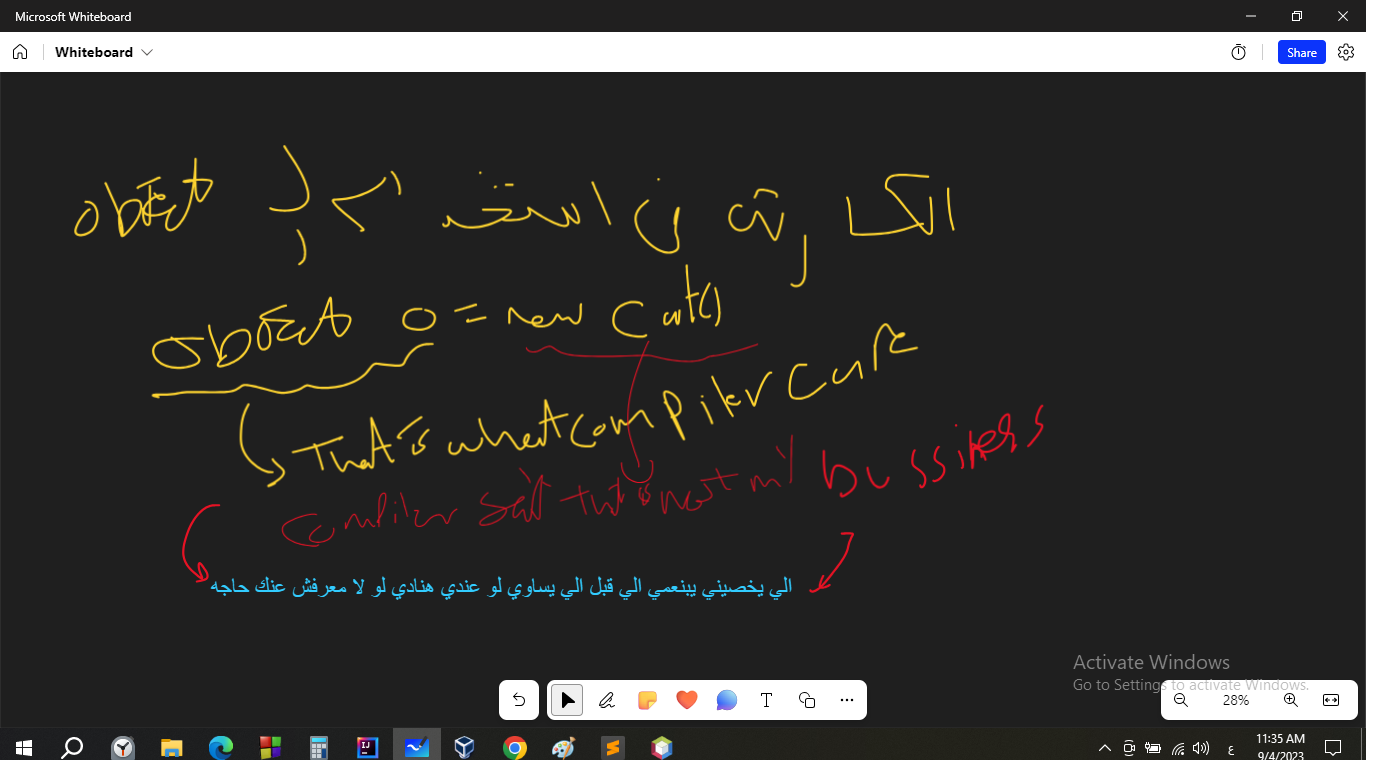 Microsoft Whiteboard
Whiteboard
Share
object
object o = new Cat()
That is what compiler care
compiler said that is not my bussiness
الي يخصيني يبنعمي الي قبل الي يساوي لو عندي هنادي لو لا معرفش عنك حاجه
Activate Windows
Go to Settings to activate Windows.
28%
ع
11:35 AM
9/4/2023